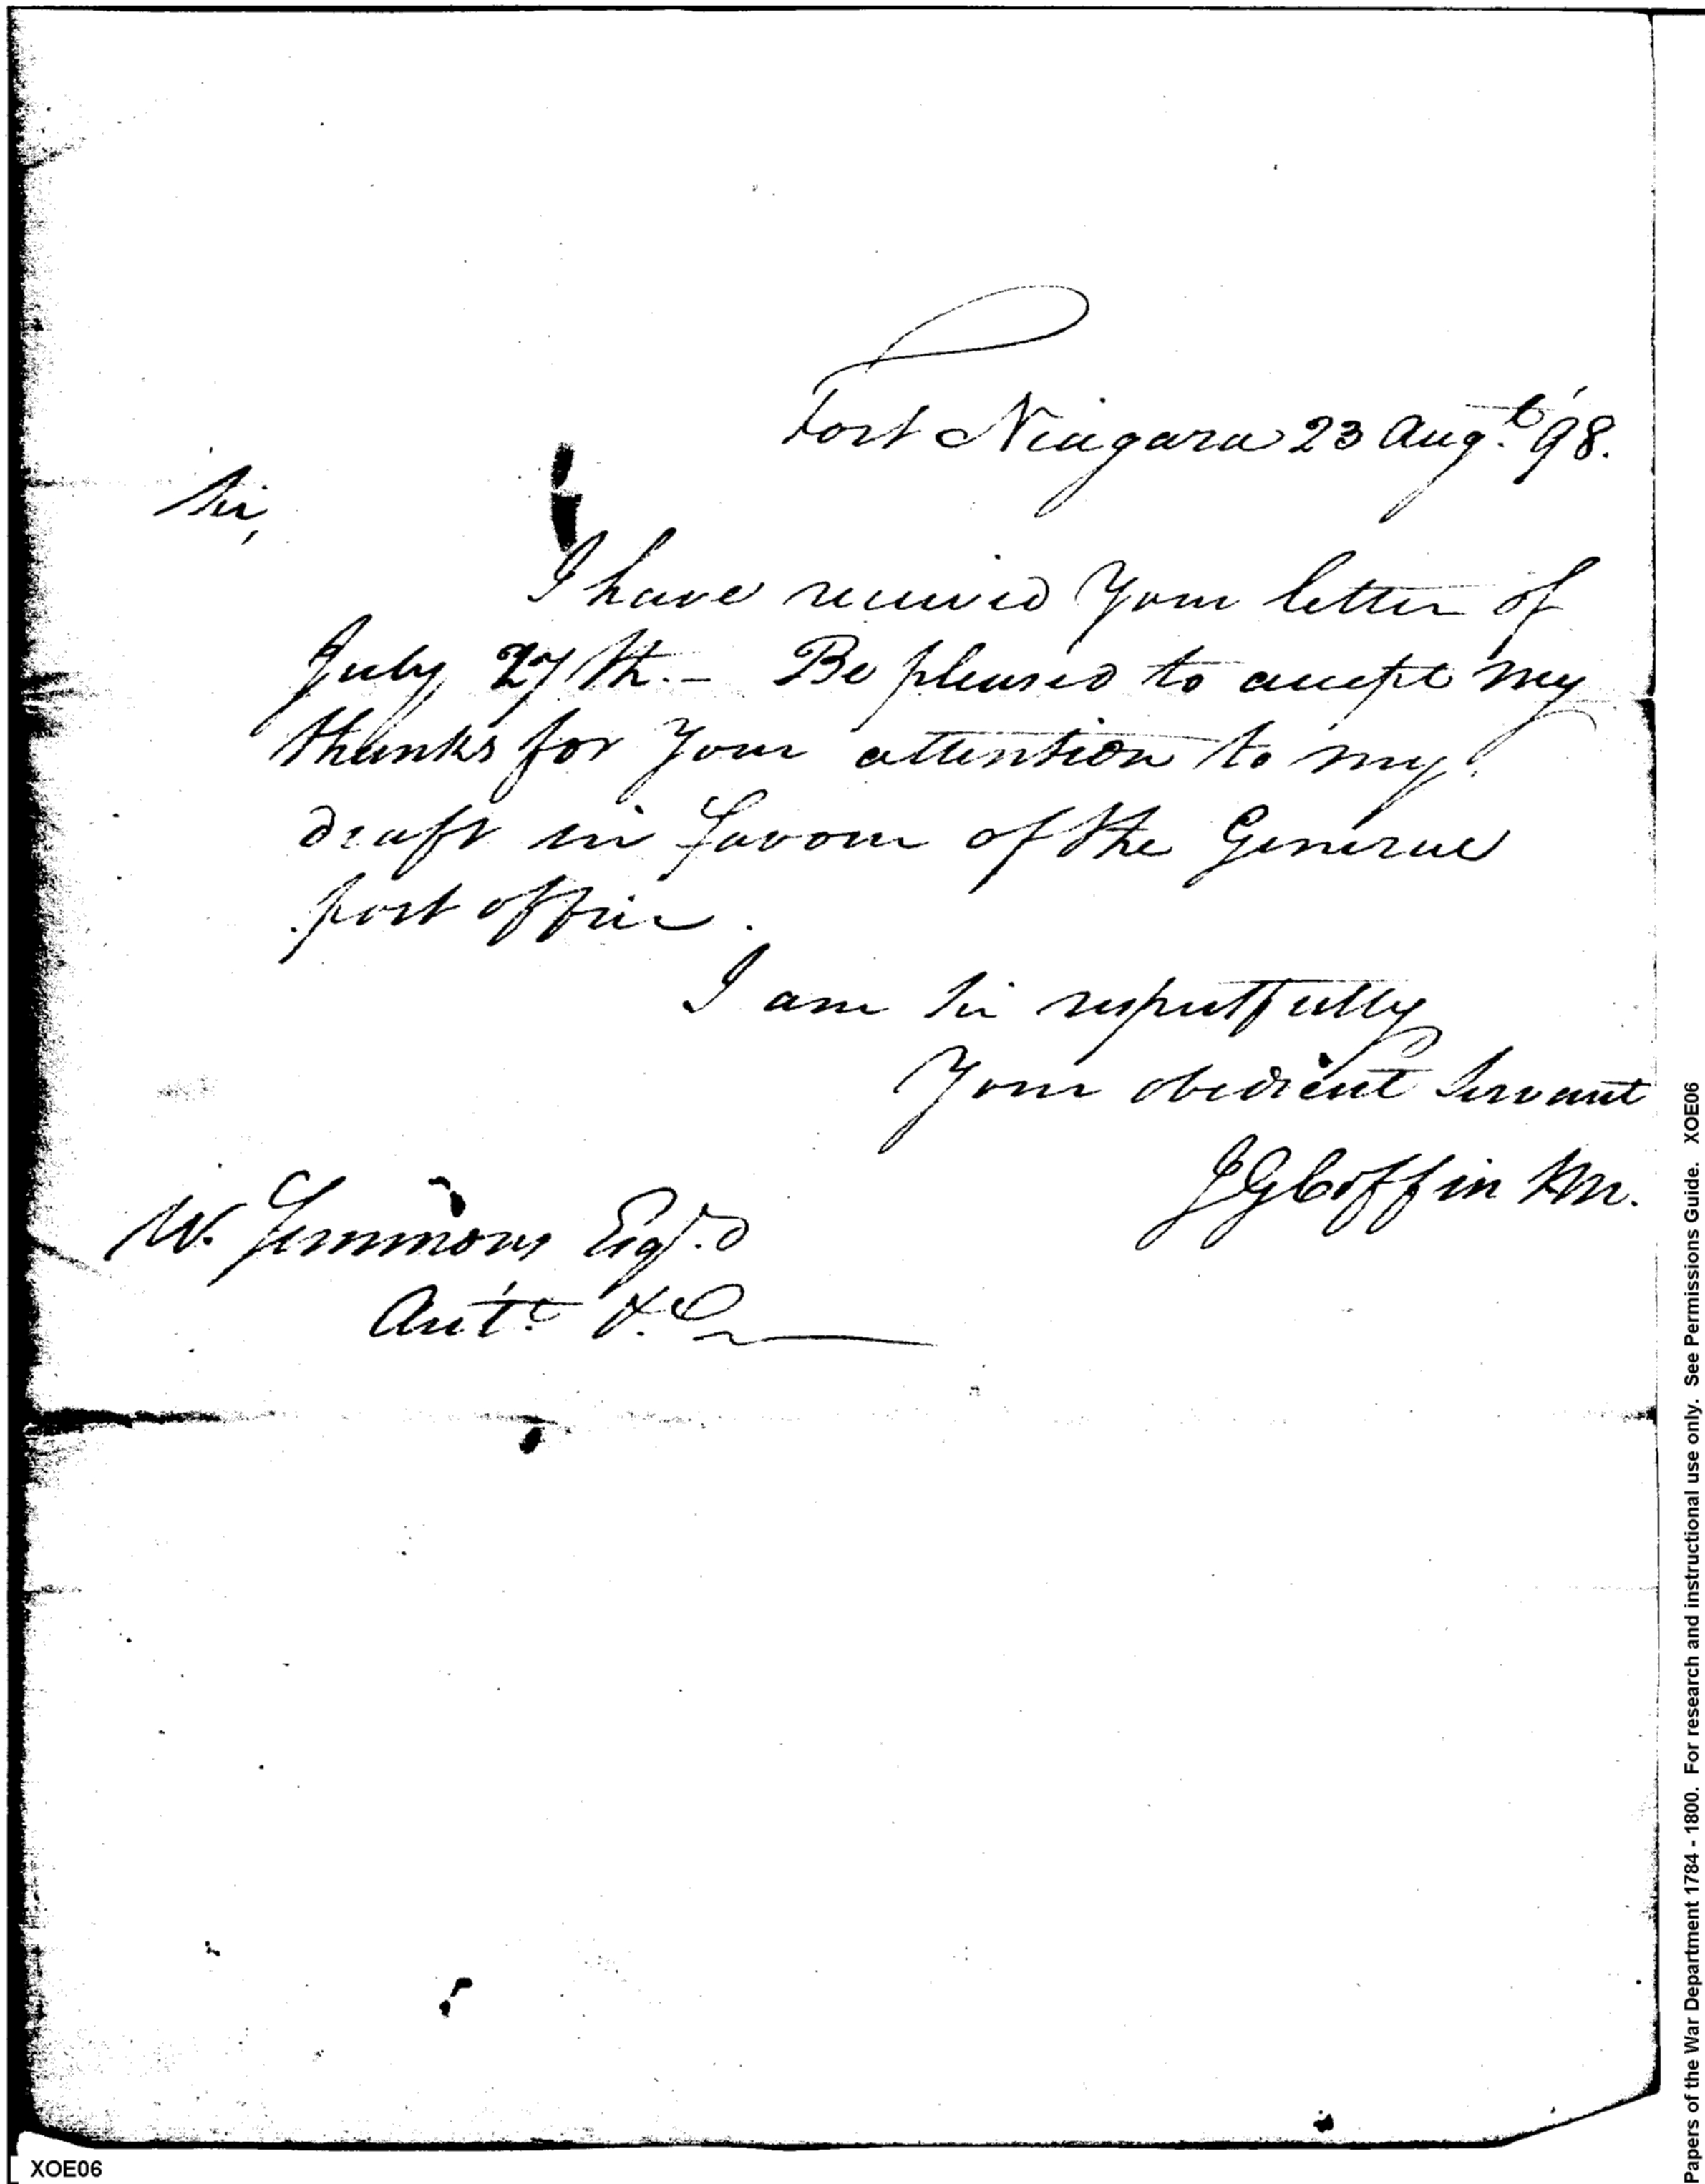 Fort Niagara 23 Augt. '98.
Sir,
I have received Your letter of
July 27th. – Be pleased to accept my
thanks for Your attention to my
draft in favour of the General
post office.
I am Sir respectfully
Your obedient Servant
JG Coffin
W. Simmons Esqr.
Acct.
XOE06
Papers of the War Department 1784 - 1800. For research and instructional use only. See Permissions Guide. XOE06